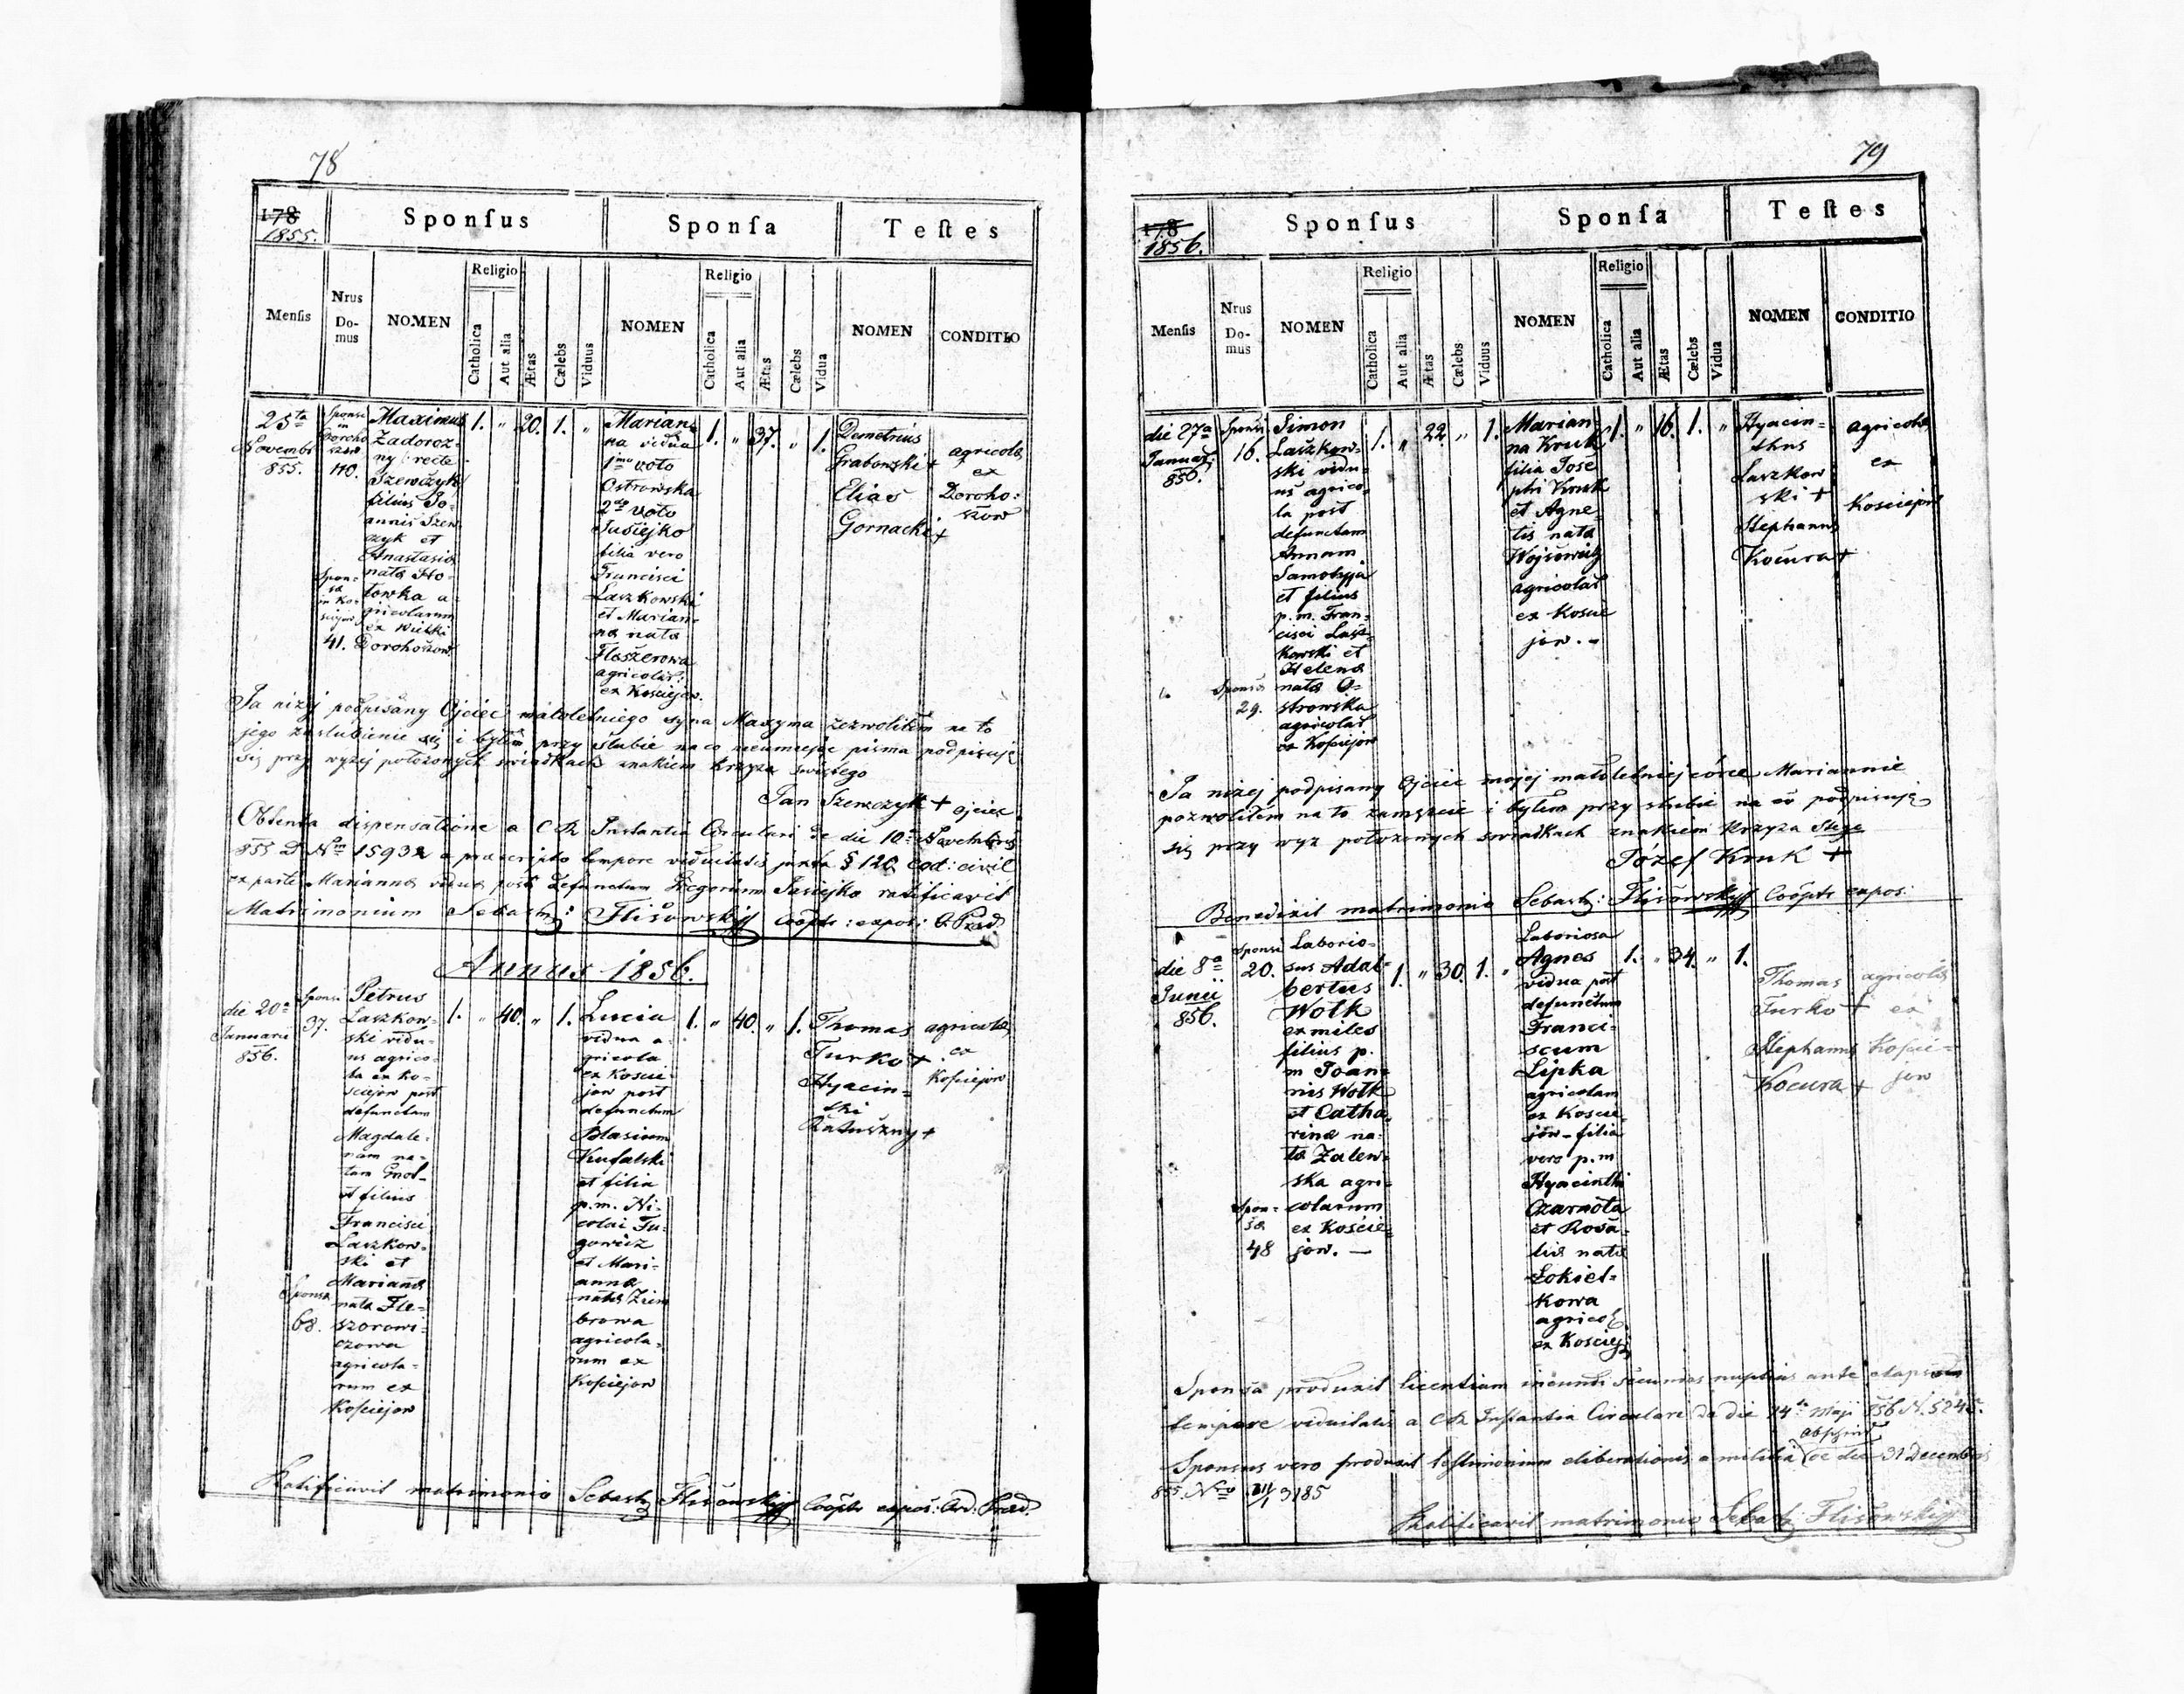 78
178
1855.
Sponſus
Sponſa
Teſtes
Menſis
Nrus
Do-
mus
NOMEN
Religio
Catholica
Aut alia
Ætas
Cælebs
Viduus
NOMEN
Religio
Catholica
Aut alia
Ætas
Cælebs
Vidua
NOMEN
CONDITIO
25ta
Novembr
855.
Sponsi
in
Doroho
szow
110.
Spon-
sa
in Ko-
sciejow
41.
Maximus
Zadoroz-
ny : recte
Szewczyk
filius Jo-
annis Szew
czyk et
Anastasia
nata Ho-
towka a-
gricolarum
ex Wielki
Dorohoszow.
1.
"
20.
1.
"
Marian-
na vidua
1mo voto
Ostrowska
2do voto
Jusiejko
filia vero
Francisci
Laszkowski
et Marian-
na nata
Flaszerowa
agricolar:
ex Kosciejow.
1.
"
37.
"
1.
Demetrius
Grabowski +
Elias
Gornacki +
agricola
ex
Doroho:
szow
Ja niżej podpisany Ojciec małoletniego syna Maxyma zezwoliłem na to
jego zaslubienie się i byłem przy slubie na co nieumiejąc pisma podpisuję
się przy wyżej położonych swiadkach znakiem krzyża swiętego
Jan Szewczyk + ojciec
Obtenta dispensatione a CR Instantia Circulari de die 10a Novembris
855 D Nro 15932 a praescripto tempore viduitatis juxta § 120 Cod: civil
ex parte Marianna vidua post defunctum Gregorium Jusiejko ratificavit
Matrimonium Sebast: Flisowski Coöptr: expos: O. Praed.
Annus 1856.
die 20a
Januarii
856.
Sponsi
37.
Sponsa
68.
Petrus
Laszkow-
ski vidu-
us agrico-
la ex Ko-
sciejow post
defunctam
Magdale-
nam na-
tam Gnot-
et filius
Francisci
Laszkow-
ski et
Marianna
nata Fle-
szorowi-
czowa
agricola-
rum ex
Kosciejow
1.
"
40.
"
1.
Lucia
vidua a-
gricola
ex Koscie-
jow post
defunctum
Blasium
Kufalski
et filia
p.m. Ni-
colai Tu-
gowicz
et Mari-
anna
nata Zim
browa
agricola-
rum ex
Kosciejow
1.
"
40.
"
1.
Thomas
Turko +
Hyacin-
ski
Ratuszny +
agricola
ex
Kosciejow
Ratificavit matrimonio Sebast: Flisowski Coöptr expos: Ord: Praed.
79
178
1856.
Sponſus
Sponſa
Teſtes
Menſis
Nrus
Do-
mus
NOMEN
Religio
Catholica
Aut alia
Ætas
Cælebs
Viduus
NOMEN
Religio
Catholica
Aut alia
Ætas
Cælebs
Vidua
NOMEN
CONDITIO
die 27a
Januar:
856.
Sponsi
16.
Sponsa
29.
Simon
Laszkow-
ski vidu-
us agrico-
la post
defunctam
Annam
Samobyja
et filius
p.m. Fran-
cisci Lasz-
kowski et
Helena
nata O-
strowska
agricolar
ex Kosciejow
1.
"
22.
"
1.
Marian
na Kruk
filia Jose
phi Kruk
et Agne-
tis nata
Wojsewicz
agricolar
ex Koscie
jow. -
1.
"
16.
1.
"
Hyacin-
thus
Laszkow
ski +
Stephanus
Kocura +
agricola
ex
Kosciejow
Ja niżej podpisany Ojciec mojej małoletniej córce Mariannie
pozwoliłem na to zamęzcie i byłem przy slubie na co podpisuję
się przy wyz położonych swiadkach znakiem Krzyża Stego
Józef Kruk +
Benedixit matrimonio Sebast: Flisowski Coöptr expos:
die 8a
Junii
856.
Sponsi
20.
Spon-
sa
48
Laborio-
sus Adal-
bertus
Wolk
ex miles
filius p.
m Joan-
nis Wolk
et Catha-
rina na-
ta Zalew-
ska agri-
colarum
ex Koscie-
jow. —
1.
"
30.
1.
"
Laboriosa
Agnes
vidua post
defunctum
Franci-
scum
Lipka
agricolam
ex Koscie-
jow - filia
vero p.m
Hyacinthi
Czarnota
et Rosa-
lis nata
Lokiet-
kowa
agricol
ex Kosciej
1.
"
34.
"
1.
Thomas
Turko +
Stephanus
Kocura +
agricola
ex
Koscie-
jow
Sponsa produxit licentiam ineundi secundas nuptias ante elapsum
tempore viduitatis a CR Instantia Circulare de die 14ta Maji 856 N. 5245.
Sponsus vero produxit testimonium eliberationis a militia Abschied de die 31 Decembris
855. Nro 3185
Ratificavit matrimonio Sebast: Flisowski